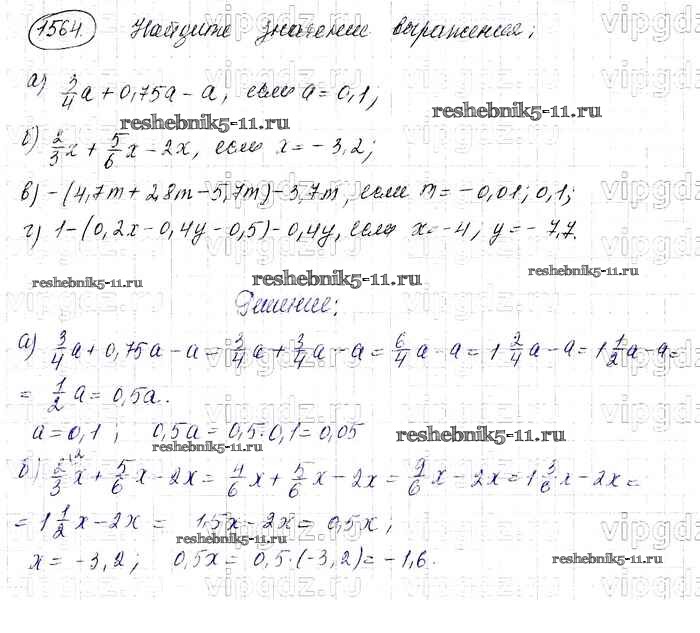 1564. Найдите значение выражения:
а) 3/4 a + 0,75a - a, если a = 0,1;
reshebnik5-11.ru
reshebnik5-11.ru
б) 2/3 x + 5/6 x - 2x, если x = - 3,2;
в) -(4,7m + 2,8m - 5,7m) - 3,7m, если m = -0,01; 0,1;
г) 1 - (0,2x - 0,4y - 0,5) - 0,4y, если x = -4, y = - 7,7.
reshebnik5-11.ru reshebnik5-11.ru reshebnik5-11.ru
Решение:
а) 3/4 a + 0,75a - a = 3/4 a + 3/4 a - a = 6/4 a - a = 1 2/4 a - a = 1 1/2 a - a =
= 1/2 a = 0,5a.
a = 0,1 ; 0,5a = 0,5·0,1 = 0,05
reshebnik5-11.ru reshebnik5-11.ru
б) 2/3 x + 5/6 x - 2x = 4/6 x + 5/6 x - 2x = 9/6 x - 2x = 1 3/6 x - 2x =
= 1 1/2 x - 2x = 1,5x - 2x = 0,5x ;
reshebnik5-11.ru
x = -3,2 ; 0,5x = 0,5·(-3,2) = -1,6.
reshebnik5-11.ru
vipgdz.ru